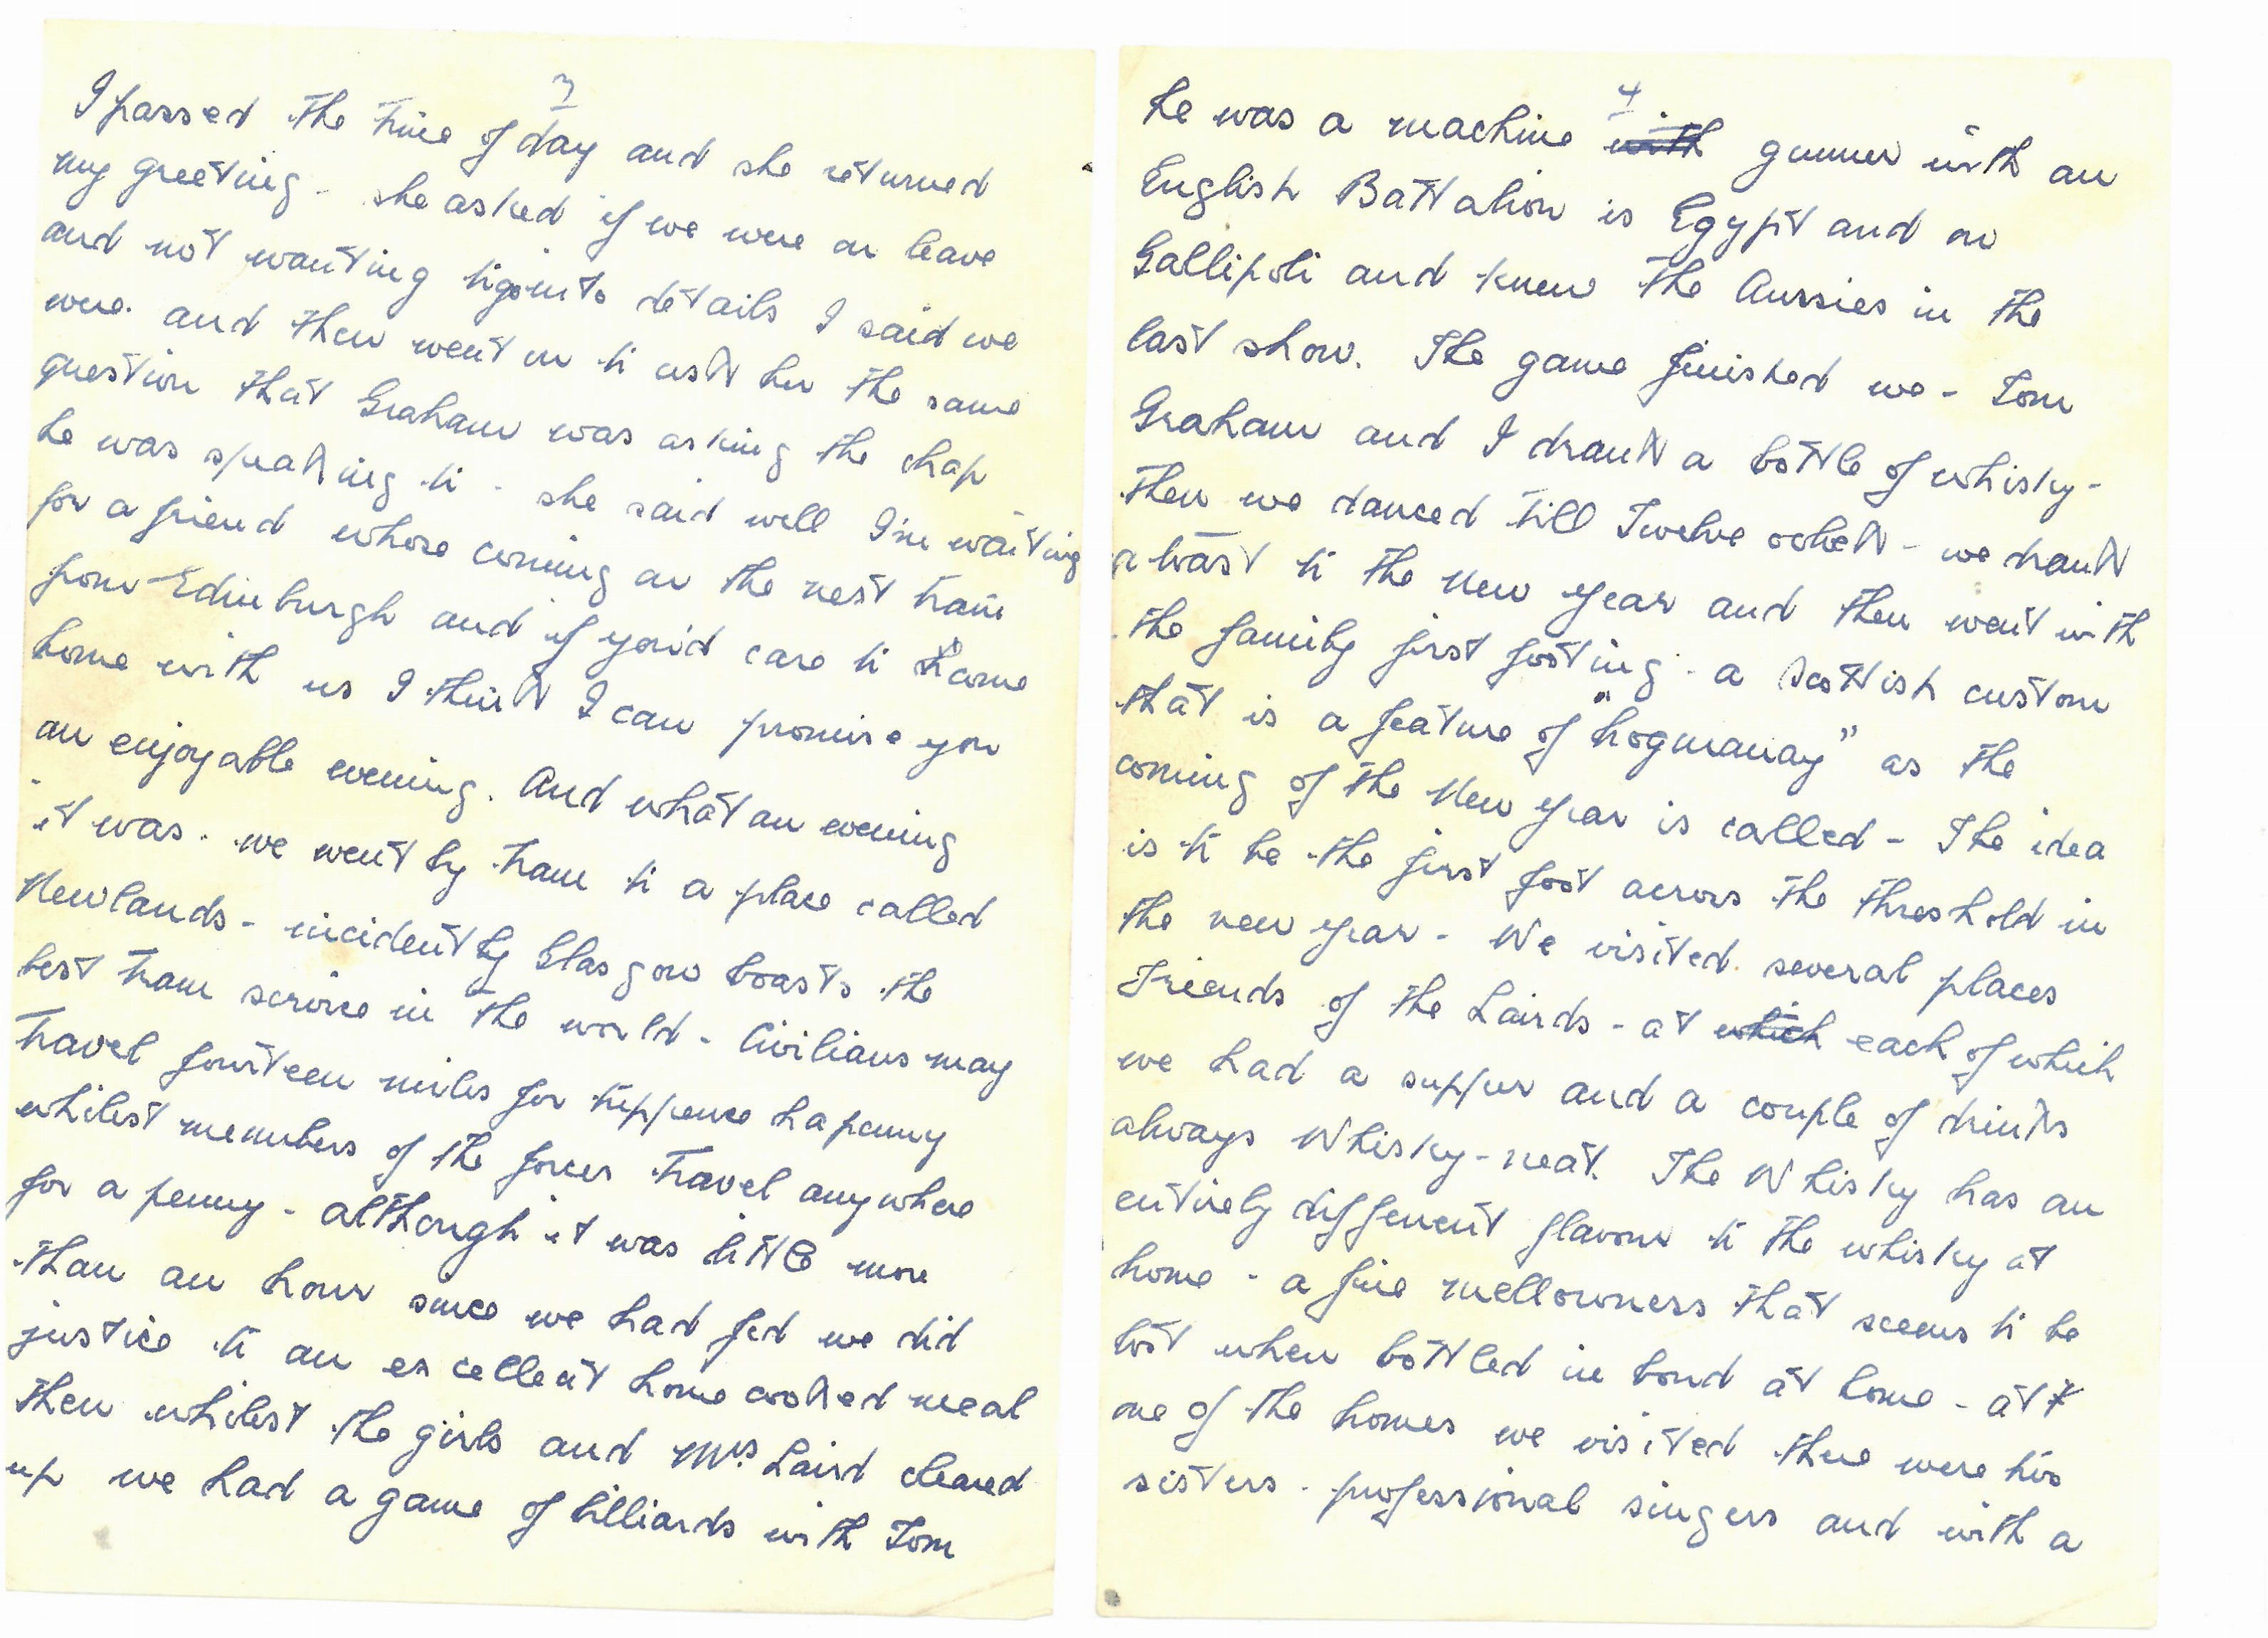 3
I passed the time of day and she returned
my greeting - she asked if we were on leave
and not wanting to go into details I said we
were. and then went on to ask her the same
question that Graham was asking the chap
he was speaking to - she said well I'm waiting
for a friend whose coming on the next train
from Edinburgh and if you'd care to come
home with us I think I can promise you
an enjoyable evening. And what an evening
it was. we went by tram to a place called
Newlands - incidently Glasgow boasts the
best tram service in the world - Civilians may
travel fourteen miles for tuppence hapenny
whilest members of the forces travel anywhere
for a penny - although it was little more
than an hour since we had fed we did
justice to an excellent home cooked meal
then whilest the girls and Mrs Laird cleared
up we had a game of billiards with Tom
4
he was a machine with gunner with an
English Battalion is Egypt and on
Gallipoli and knew the Aussies in the
last show. The game finished we - Tom
Graham and I drank a bottle of whisky -
then we danced till Twelve oclock - we drank
a toast to the New Year and then went with
the family first footing - a Scottish custom
that is a feature of "hogmanay" as the
coming of the New Year is called - The idea
is to be the first foot across the threshold in
the new year - We visited several places
Friends of the Lairds - at which each of which
we had a supper and a couple of drinks
always Whisky - neat. The Whisky has an
entirely different flavour to the whisky at
home - a fine mellowness that seems to be
lost when bottled in bond at home - at
one of the homes we visited there were two
sisters - professional singers and with a